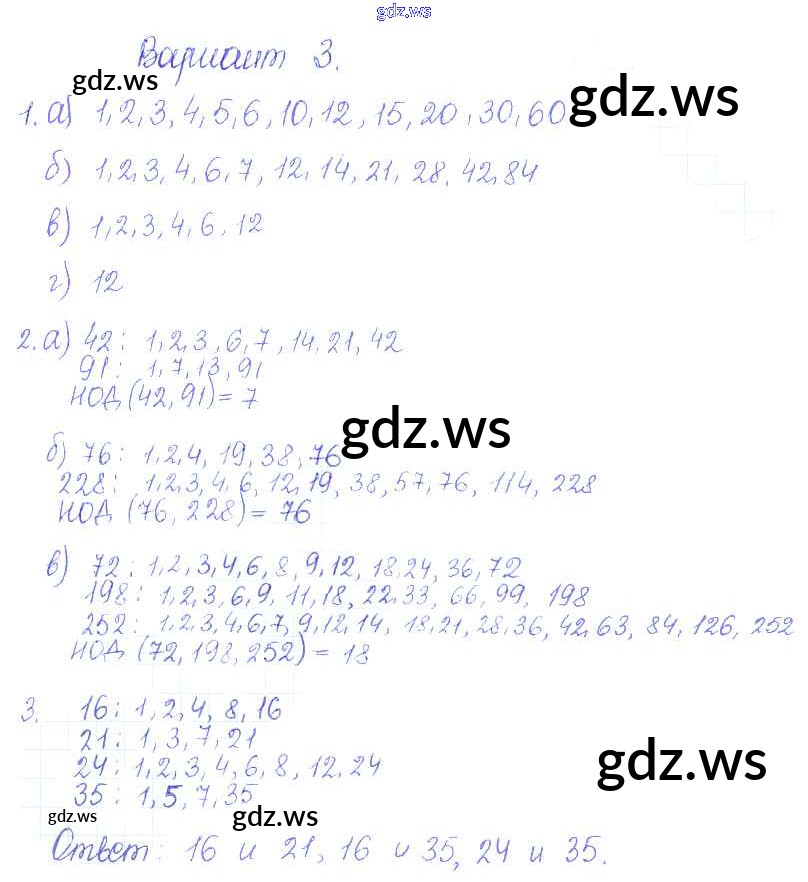 gdz.ws
Вариант 3.
gdz.ws
gdz.ws
1. а) 1, 2, 3, 4, 5, 6, 10, 12, 15, 20, 30, 60
б) 1, 2, 3, 4, 6, 7, 12, 14, 21, 28, 42, 84
в) 1, 2, 3, 4, 6, 12
г) 12
2. а) 42: 1, 2, 3, 6, 7, 14, 21, 42
91: 1, 7, 13, 91
НОД (42, 91) = 7
gdz.ws
б) 76: 1, 2, 4, 19, 38, 76
228: 1, 2, 3, 4, 6, 12, 19, 38, 57, 76, 114, 228
НОД (76, 228) = 76
в) 72: 1, 2, 3, 4, 6, 8, 9, 12, 18, 24, 36, 72
198: 1, 2, 3, 6, 9, 11, 18, 22, 33, 66, 99, 198
252: 1, 2, 3, 4, 6, 7, 9, 12, 14, 18, 21, 28, 36, 42, 63, 84, 126, 252
НОД (72, 198, 252) = 18
3. 16: 1, 2, 4, 8, 16
21: 1, 3, 7, 21
24: 1, 2, 3, 4, 6, 8, 12, 24
35: 1, 5, 7, 35
gdz.ws
gdz.ws
gdz.ws
Ответ: 16 и 21, 16 и 35, 24 и 35.